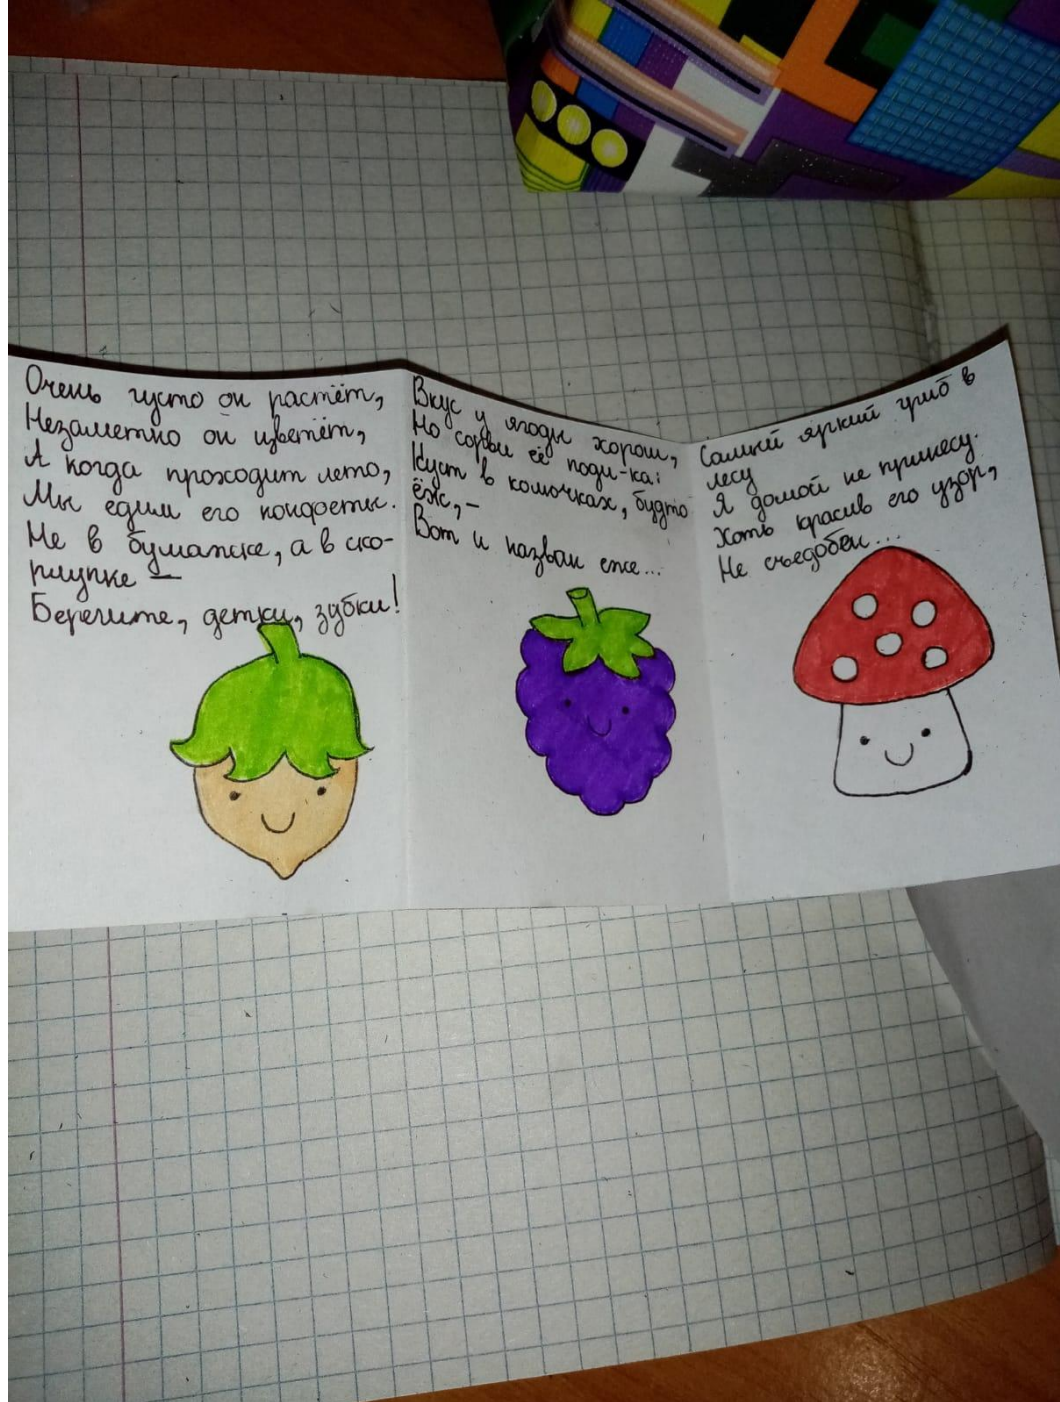 Очень густо он растёт,
Незаметно он цветёт,
А когда проходит лето,
Мы едим его конфеты.
Не в бумажке, а в ско-
рлупке —
Берегите, детки, зубки!
Вкус у ягоды хорош,
Но сорви её поди-ка:
Куст в колючках, будто
ёж, –
Вот и назван еже...
Самый яркий гриб в
лесу
Я домой не принесу.
Хоть красив его узор,
Не съедобен...